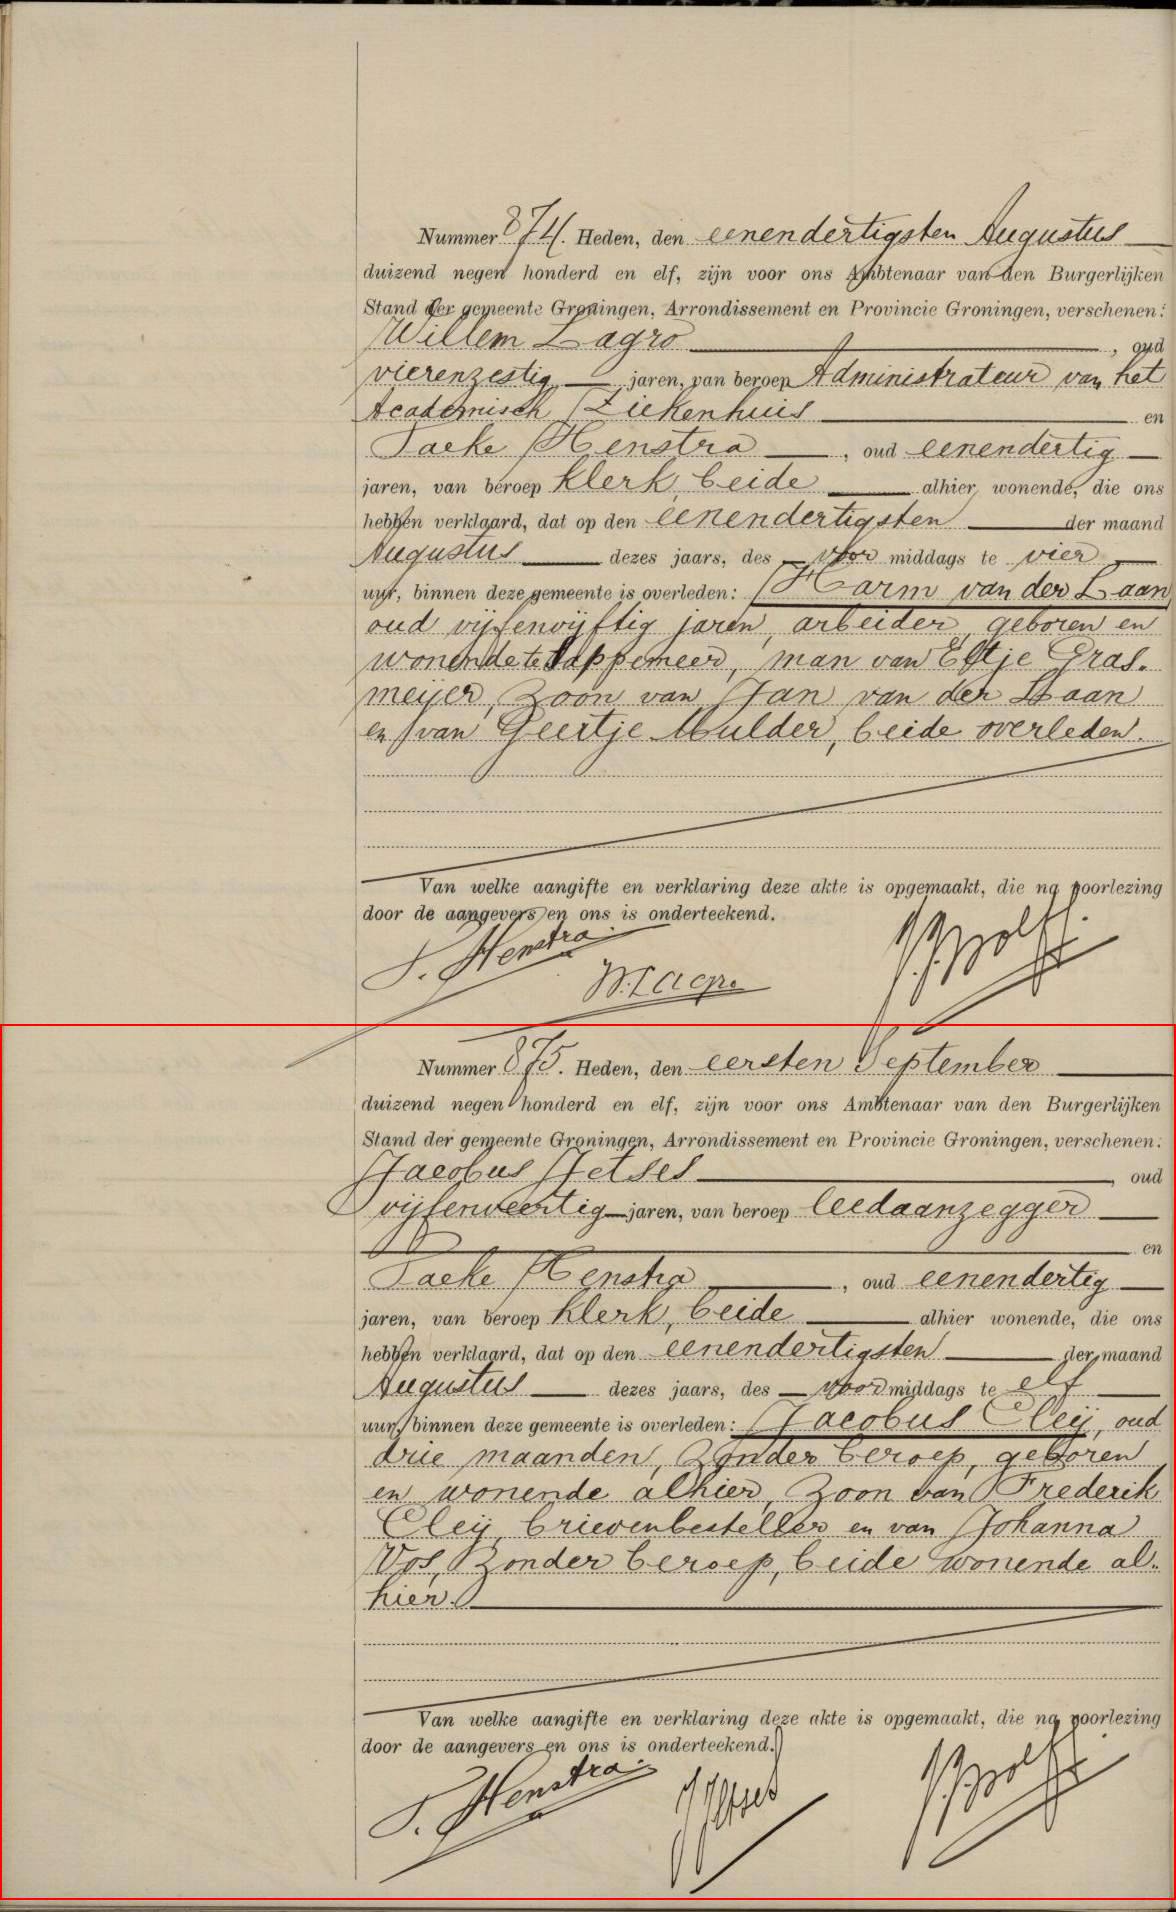 Nummer 874. Heden, den eenendertigsten Augustus
duizend negen honderd en elf, zijn voor ons Ambtenaar van den Burgerlijken
Stand der gemeente Groningen, Arrondissement en Provincie Groningen, verschenen:
Willem Lagro, oud
vierenzestig jaren, van beroep Administrateur van het
Academisch Ziekenhuis en
Taeke Henstra, oud eenendertig
jaren, van beroep klerk, beide alhier wonende, die ons
hebben verklaard, dat op den eenendertigsten der maand
Augustus dezes jaars, des voor middags te vier
uur, binnen deze gemeente is overleden: Harm van der Laan
oud vijfenvijftig jaren, arbeider, geboren en
wonende te Sappemeer, man van Eltje Gras-
meijer, zoon van Jan van der Laan
en van Geertje Mulder, beide overleden.
Van welke aangifte en verklaring deze akte is opgemaakt, die na voorlezing
door de aangevers en ons is onderteekend.
T. Henstra.
W. Lagro
J. J. Wolff.
Nummer 875. Heden, den eersten September
duizend negen honderd en elf, zijn voor ons Ambtenaar van den Burgerlijken
Stand der gemeente Groningen, Arrondissement en Provincie Groningen, verschenen:
Jacobus Jetses, oud
vijfenveertig jaren, van beroep leedaanzegger
en
Taeke Henstra, oud eenendertig
jaren, van beroep klerk, beide alhier wonende, die ons
hebben verklaard, dat op den eenendertigsten der maand
Augustus dezes jaars, des voor middags te elf
uur, binnen deze gemeente is overleden: Jacobus Cleij, oud
drie maanden, zonder beroep, geboren
en wonende alhier, zoon van Frederik
Cleij, brievenbesteller en van Johanna
Vos, zonder beroep, beide wonende al-
hier.
Van welke aangifte en verklaring deze akte is opgemaakt, die na voorlezing
door de aangevers en ons is onderteekend.
T. Henstra.
J Jetses
J. J. Wolff.